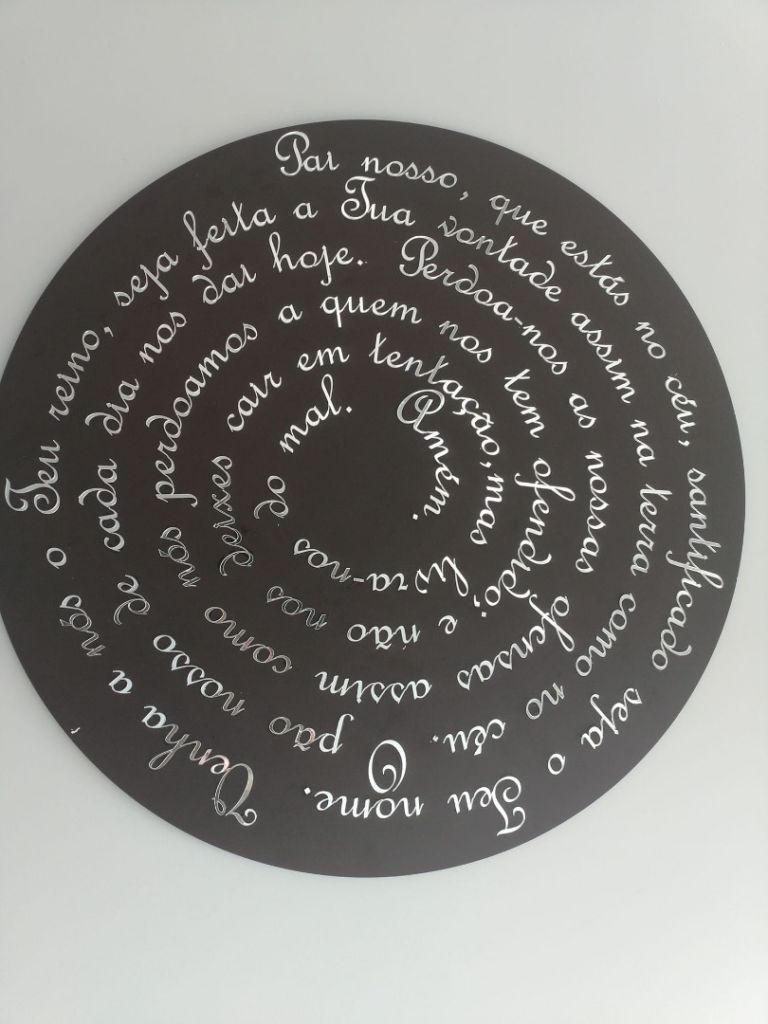 Pai nosso, que estás no céu, santificado seja o Teu nome. Venha a nós o Teu reino, seja feita a Tua vontade assim na terra como no céu. O pão nosso de cada dia nos dai hoje. Perdoa-nos as nossas ofensas assim como nós perdoamos a quem nos tem ofendido; e não nos deixes cair em tentação, mas livra-nos do mal. Amém.